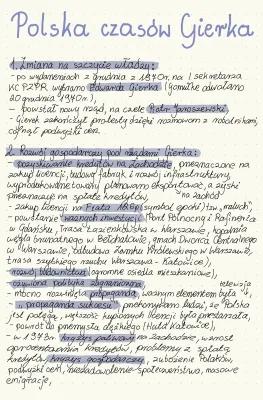 Polska czasów Gierka
1. Zmiana na szczycie władzy:
- po wydarzeniach z grudnia z 1970 r. na I sekretarza
KC PZPR wybrano Edwarda Gierka (Gomułkę odwołano
20 grudnia 1970 r.),
- powstał nowy rząd, na czele Piotr Jaroszewicz,
- Gierek zakończył protesty dzięki rozmowom z robotnikami,
cofnął podwyżki cen.
2. Rozwój gospodarczy pod rządami Gierka:
- pozyskiwanie kredytów na Zachodzie, przeznaczone na
zakup licencji, budowę fabryk i rozwój infrastruktury,
wyprodukowane towary planowano eksportować, a zyski
przeznaczyć na spłatę kredytów, na zachód
- zakup licencji na Fiata 126p (symbol epoki) tzw. „maluch",
- powstanie ważnych inwestycji (Port Północny i Rafineria
w Gdańsku, Trasa Łazienkowska w Warszawie, kopalnia
węgla brunatnego w Bełchatowie, gmach Dworca Centralnego
w Warszawie, odbudowa Zamku Królewskiego w Warszawie,
trasa szybkiego ruchu Warszawa - Katowice),
- rozwój budownictwa (ogromne osiedla mieszkaniowe),
- ożywiona polityka zagraniczna, telewizja
- mocno rozwinięta propaganda, ważnym elementem była
- propaganda sukcesu - przekonywano ludzi, że Polska
jest potęgą, większość kupionych licencji była przestarzała,
- powrót do przemysłu ciężkiego (Huta Katowice),
- w 1973 r. kryzys paliwowy na Zachodzie, wzrost
oprocentowania kredytów, problemy z spłatą
kredytu, kryzys gospodarczy, zubożenie Polaków,
podwyżki cen, niezadowolenie społeczeństwa, masowe
emigracje,